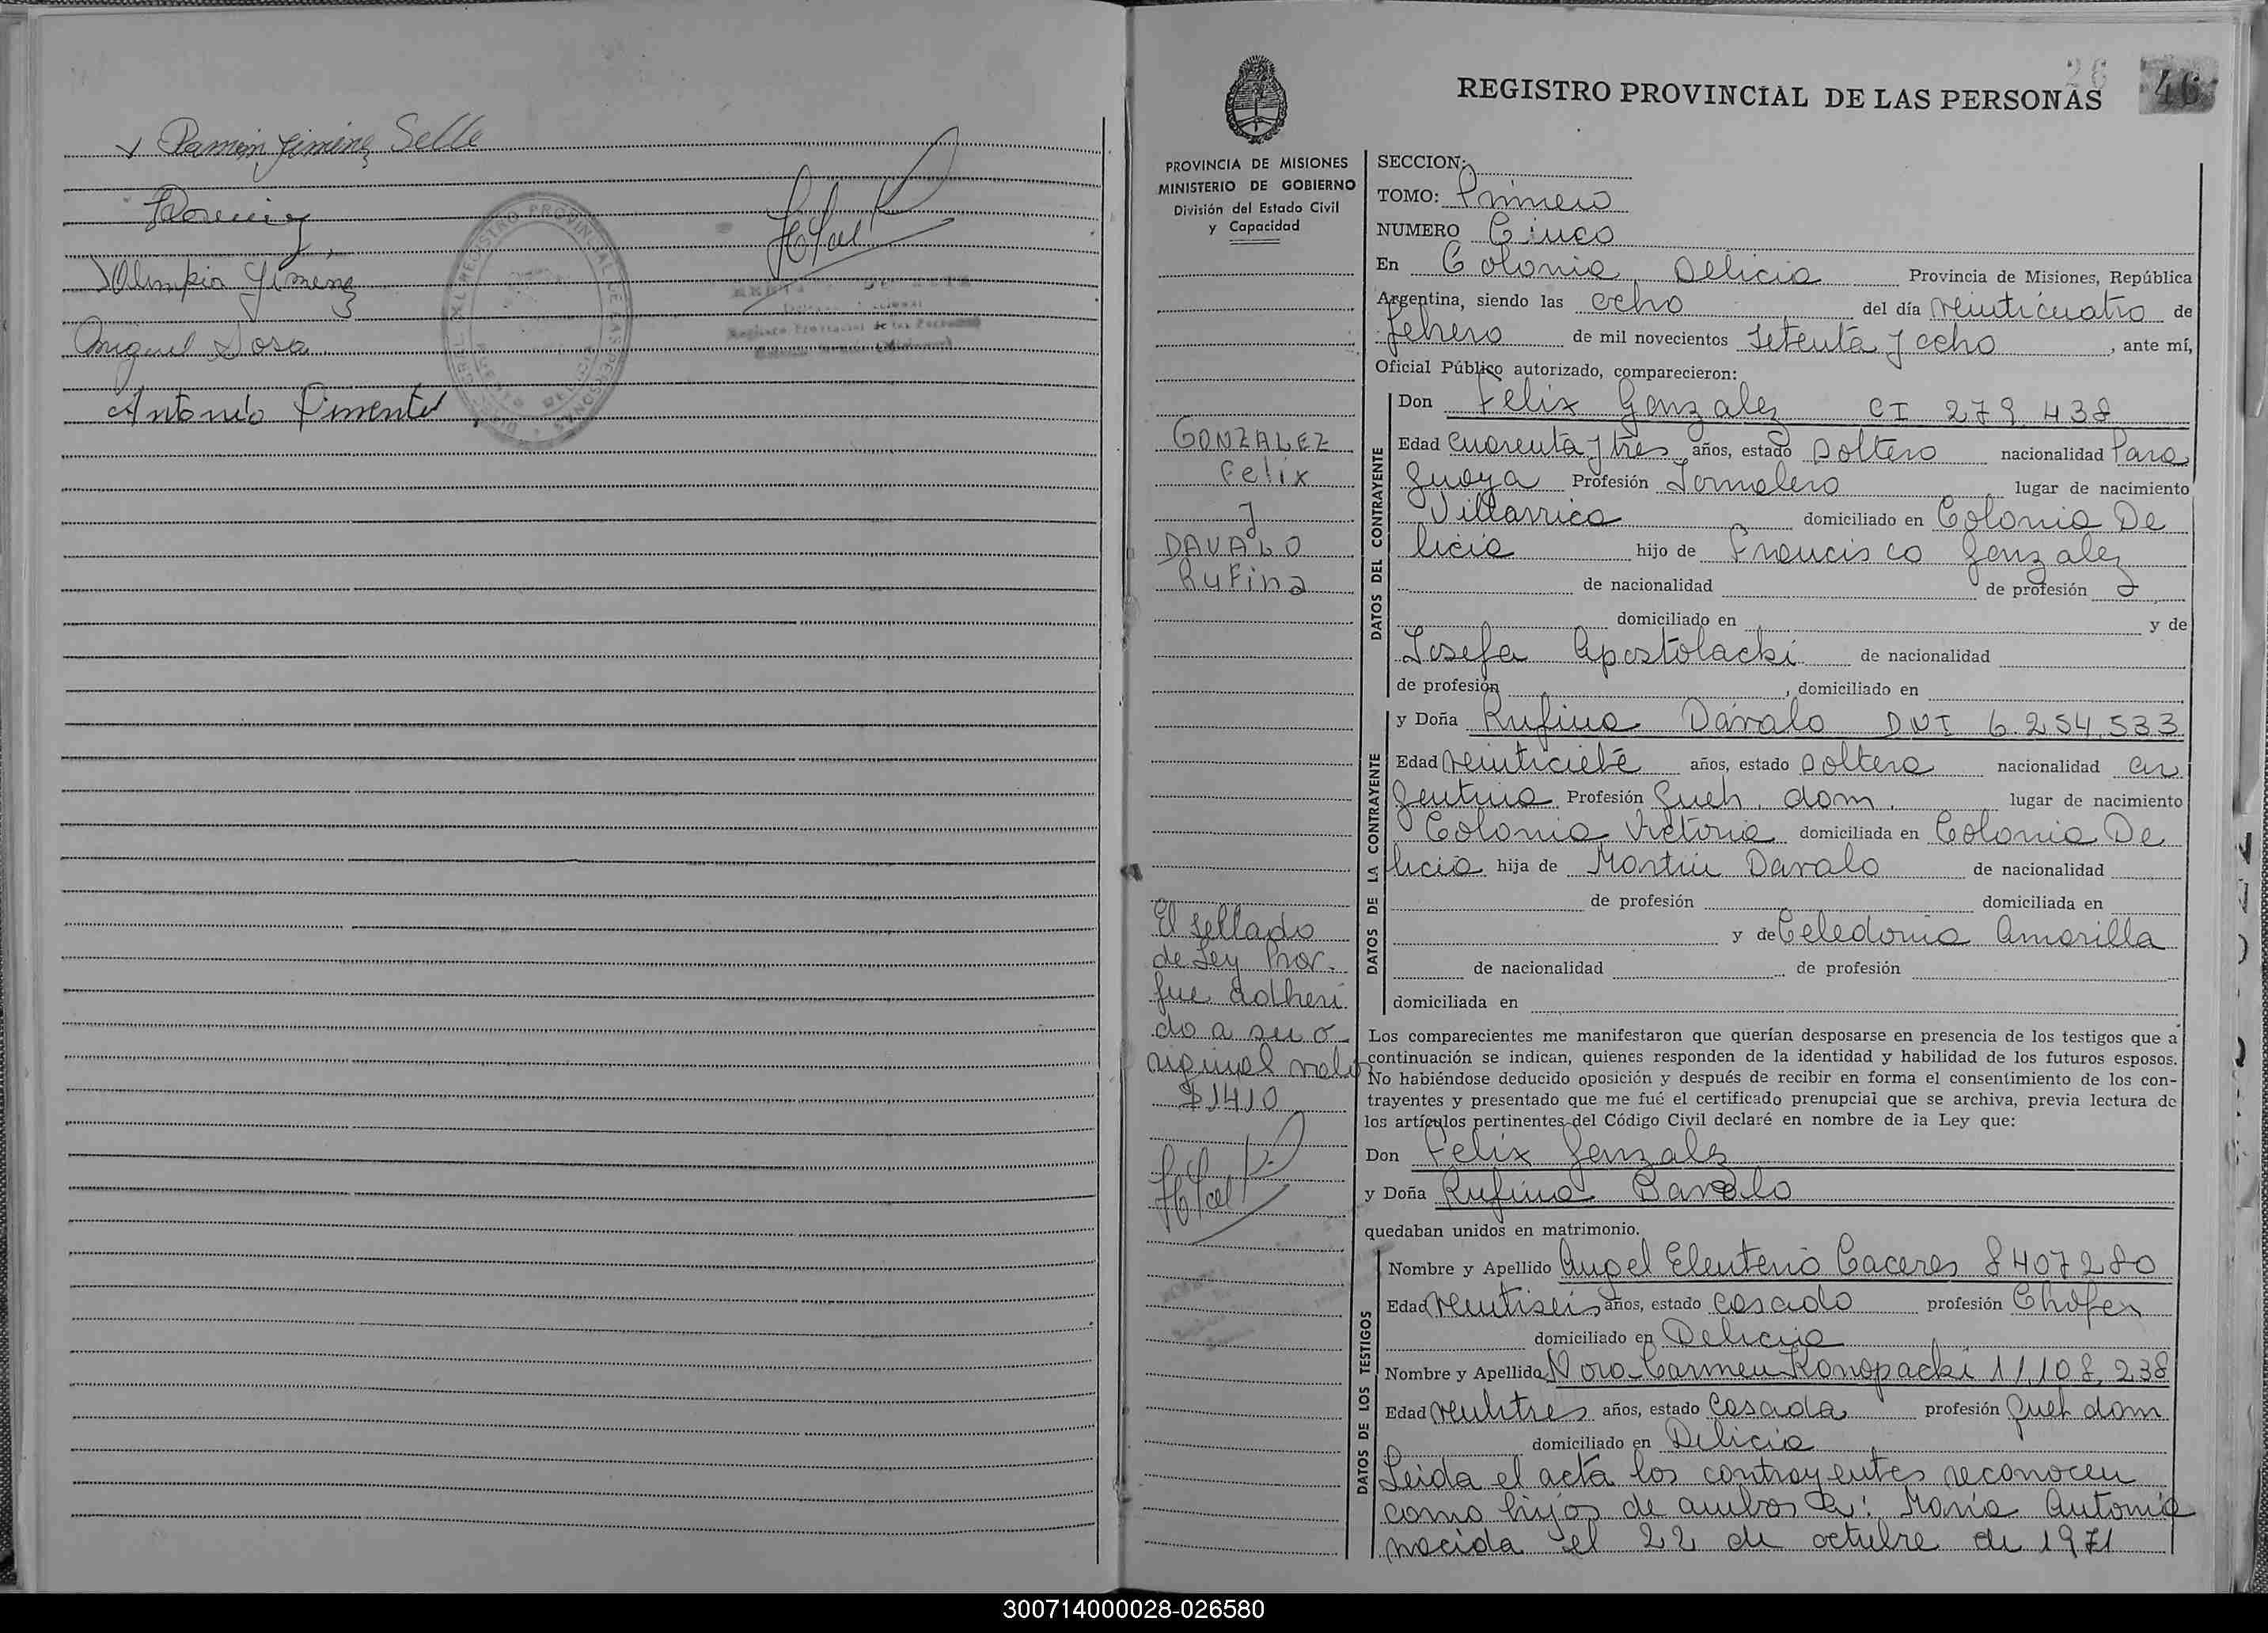 Ramón Jiménez Selle
Olimpia Jiménez
Miguel Sosa
Antonio Pimentel
REGISTRO PROVINCIAL DE LAS PERSONAS
26
46
PROVINCIA DE MISIONES
MINISTERIO DE GOBIERNO
División del Estado Civil
y Capacidad
GONZALEZ
Felix
y
DAVALO
Rufina
El sellado
de Ley Prov.
fue adheri
do a su o
riginal valor
$1410
SECCION:
TOMO: Primero
NUMERO Cinco
En Colonia Delicia Provincia de Misiones, República
Argentina, siendo las ocho del día veinticuatro de
febrero de mil novecientos setenta y ocho, ante mí,
Oficial Público autorizado, comparecieron:
DATOS DEL CONTRAYENTE
Don Felix Gonzalez CI 279.438
Edad cuarenta y tres años, estado soltero nacionalidad Para
guaya Profesión Jornalero lugar de nacimiento
Villarrica domiciliado en Colonia De
licia hijo de Francisco Gonzalez
de nacionalidad de profesión
domiciliado en y de
Josefa Apostolacki de nacionalidad
de profesión , domiciliado en
DATOS DE LA CONTRAYENTE
y Doña Rufina Dávalo DNI 6.254.533
Edad veinticiete años, estado soltera nacionalidad ar
gentina Profesión queh. dom. lugar de nacimiento
Colonia Victoria domiciliada en Colonia De
licia hija de Martin Davalo de nacionalidad
de profesión domiciliada en
y de Celedonia Amarilla
de nacionalidad de profesión
domiciliada en
Los comparecientes me manifestaron que querían desposarse en presencia de los testigos que a
continuación se indican, quienes responden de la identidad y habilidad de los futuros esposos.
No habiéndose deducido oposición y después de recibir en forma el consentimiento de los con-
trayentes y presentado que me fué el certificado prenupcial que se archiva, previa lectura de
los artículos pertinentes del Código Civil declaré en nombre de la Ley que:
Don Felix Gonzalez
y Doña Rufina Davalo
quedaban unidos en matrimonio.
DATOS DE LOS TESTIGOS
Nombre y Apellido Angel Eleuterio Caceres 8407280
Edad veintiseis años, estado casado profesión Chofer
domiciliado en Delicia
Nombre y Apellido Nora Carmen Konopacki 11.108.238
Edad veintitres años, estado casada profesión queh dom
domiciliado en Delicia
Leida el acta los contrayentes reconocen
como hijos de ambos a: María Antonia
nacida el 22 de octubre de 1971
300714000028-026580